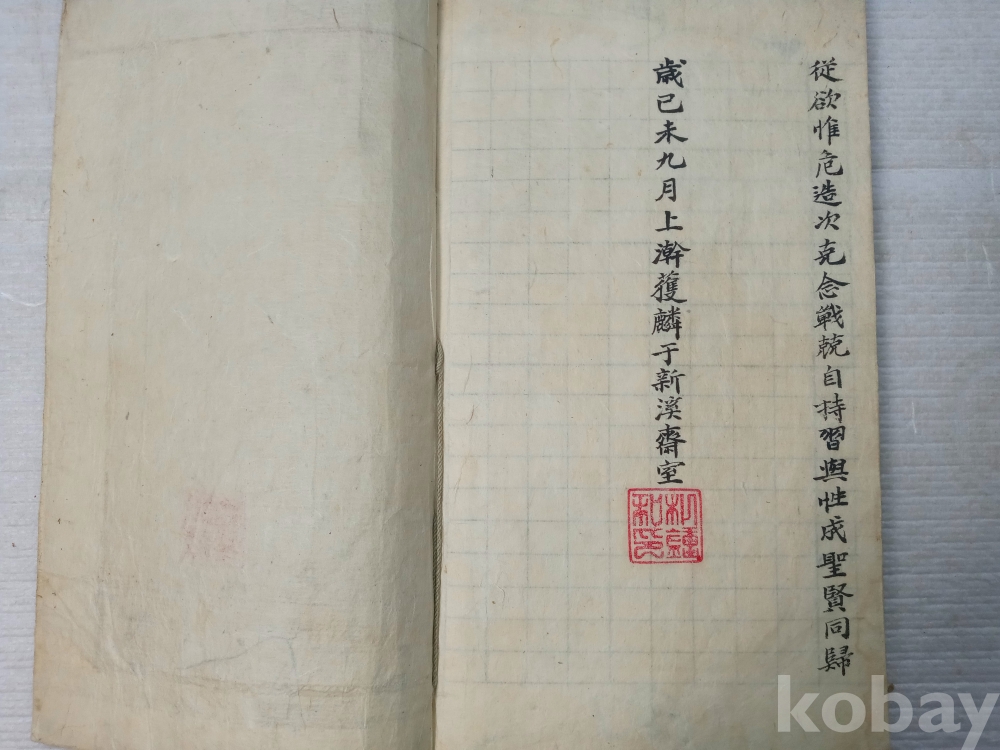 從欲惟危造次克念戰兢自持習與性成聖賢同歸
歲己未九月上澣獲麟于新溪齋室
kobay